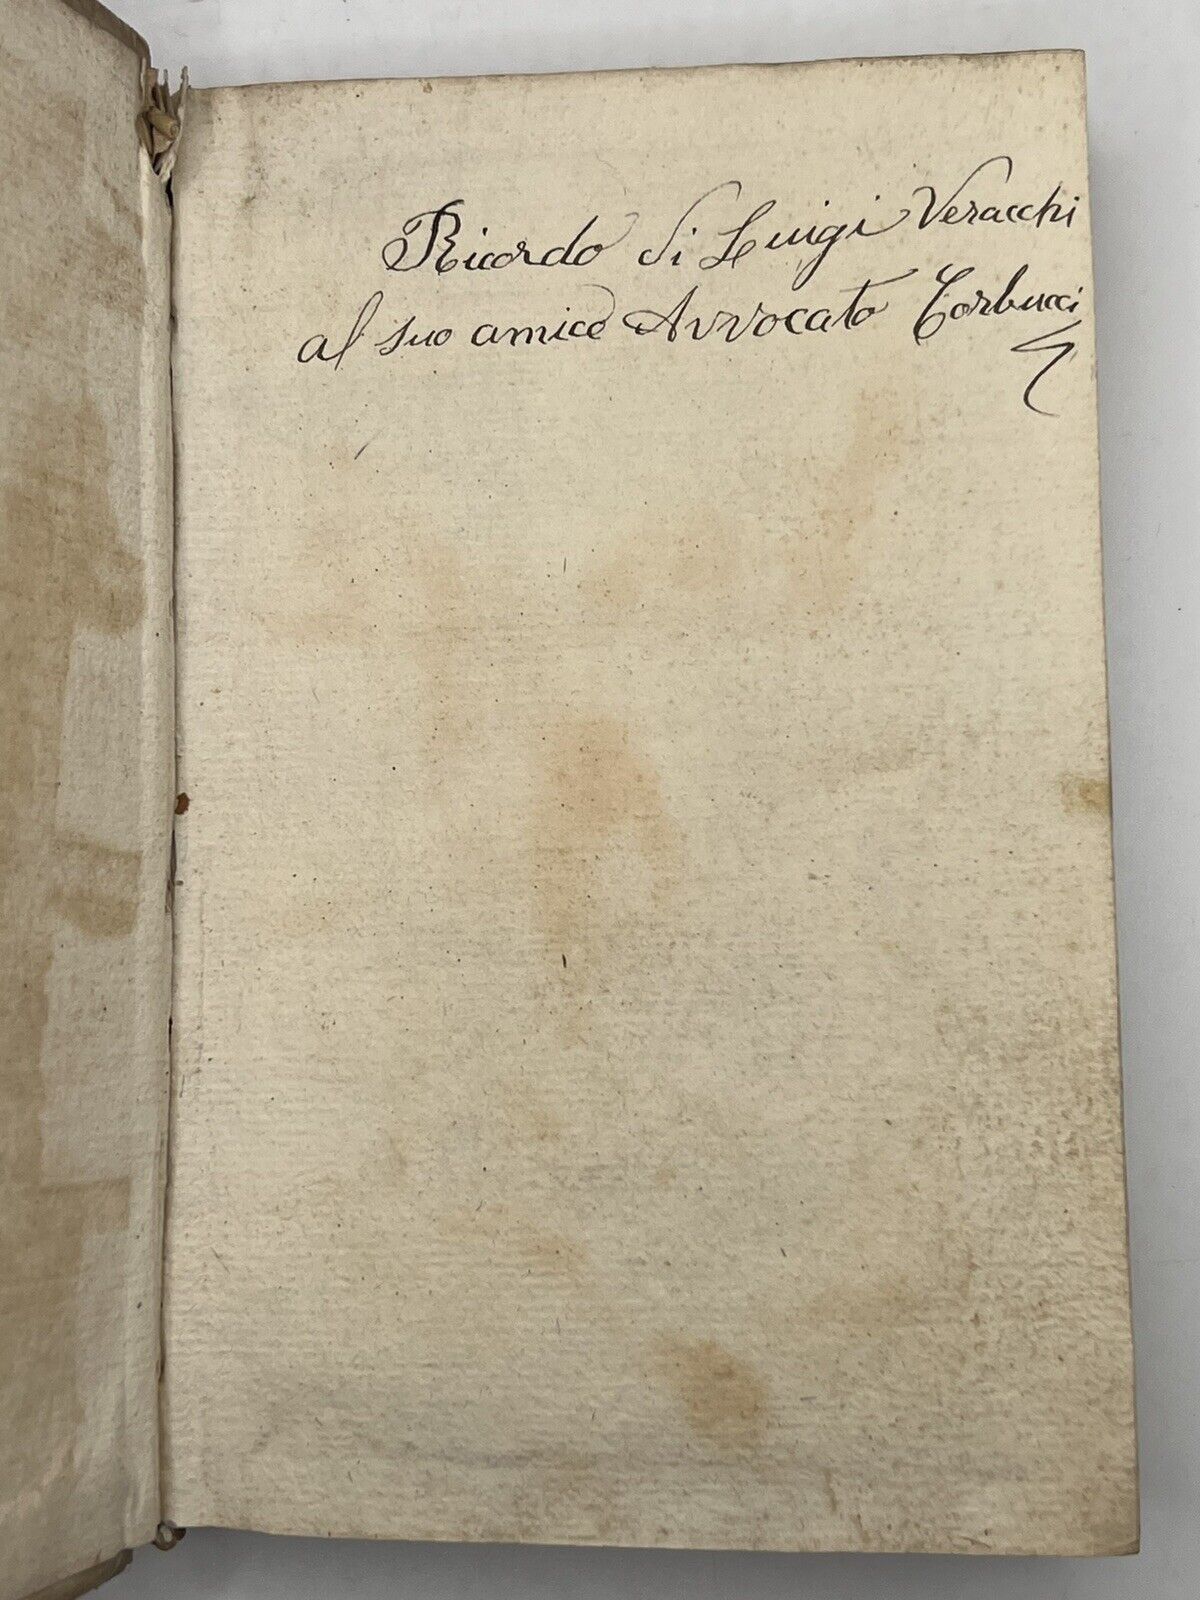 Ricordo di Luigi Veracchi
al suo amico Avvocato Corbucci